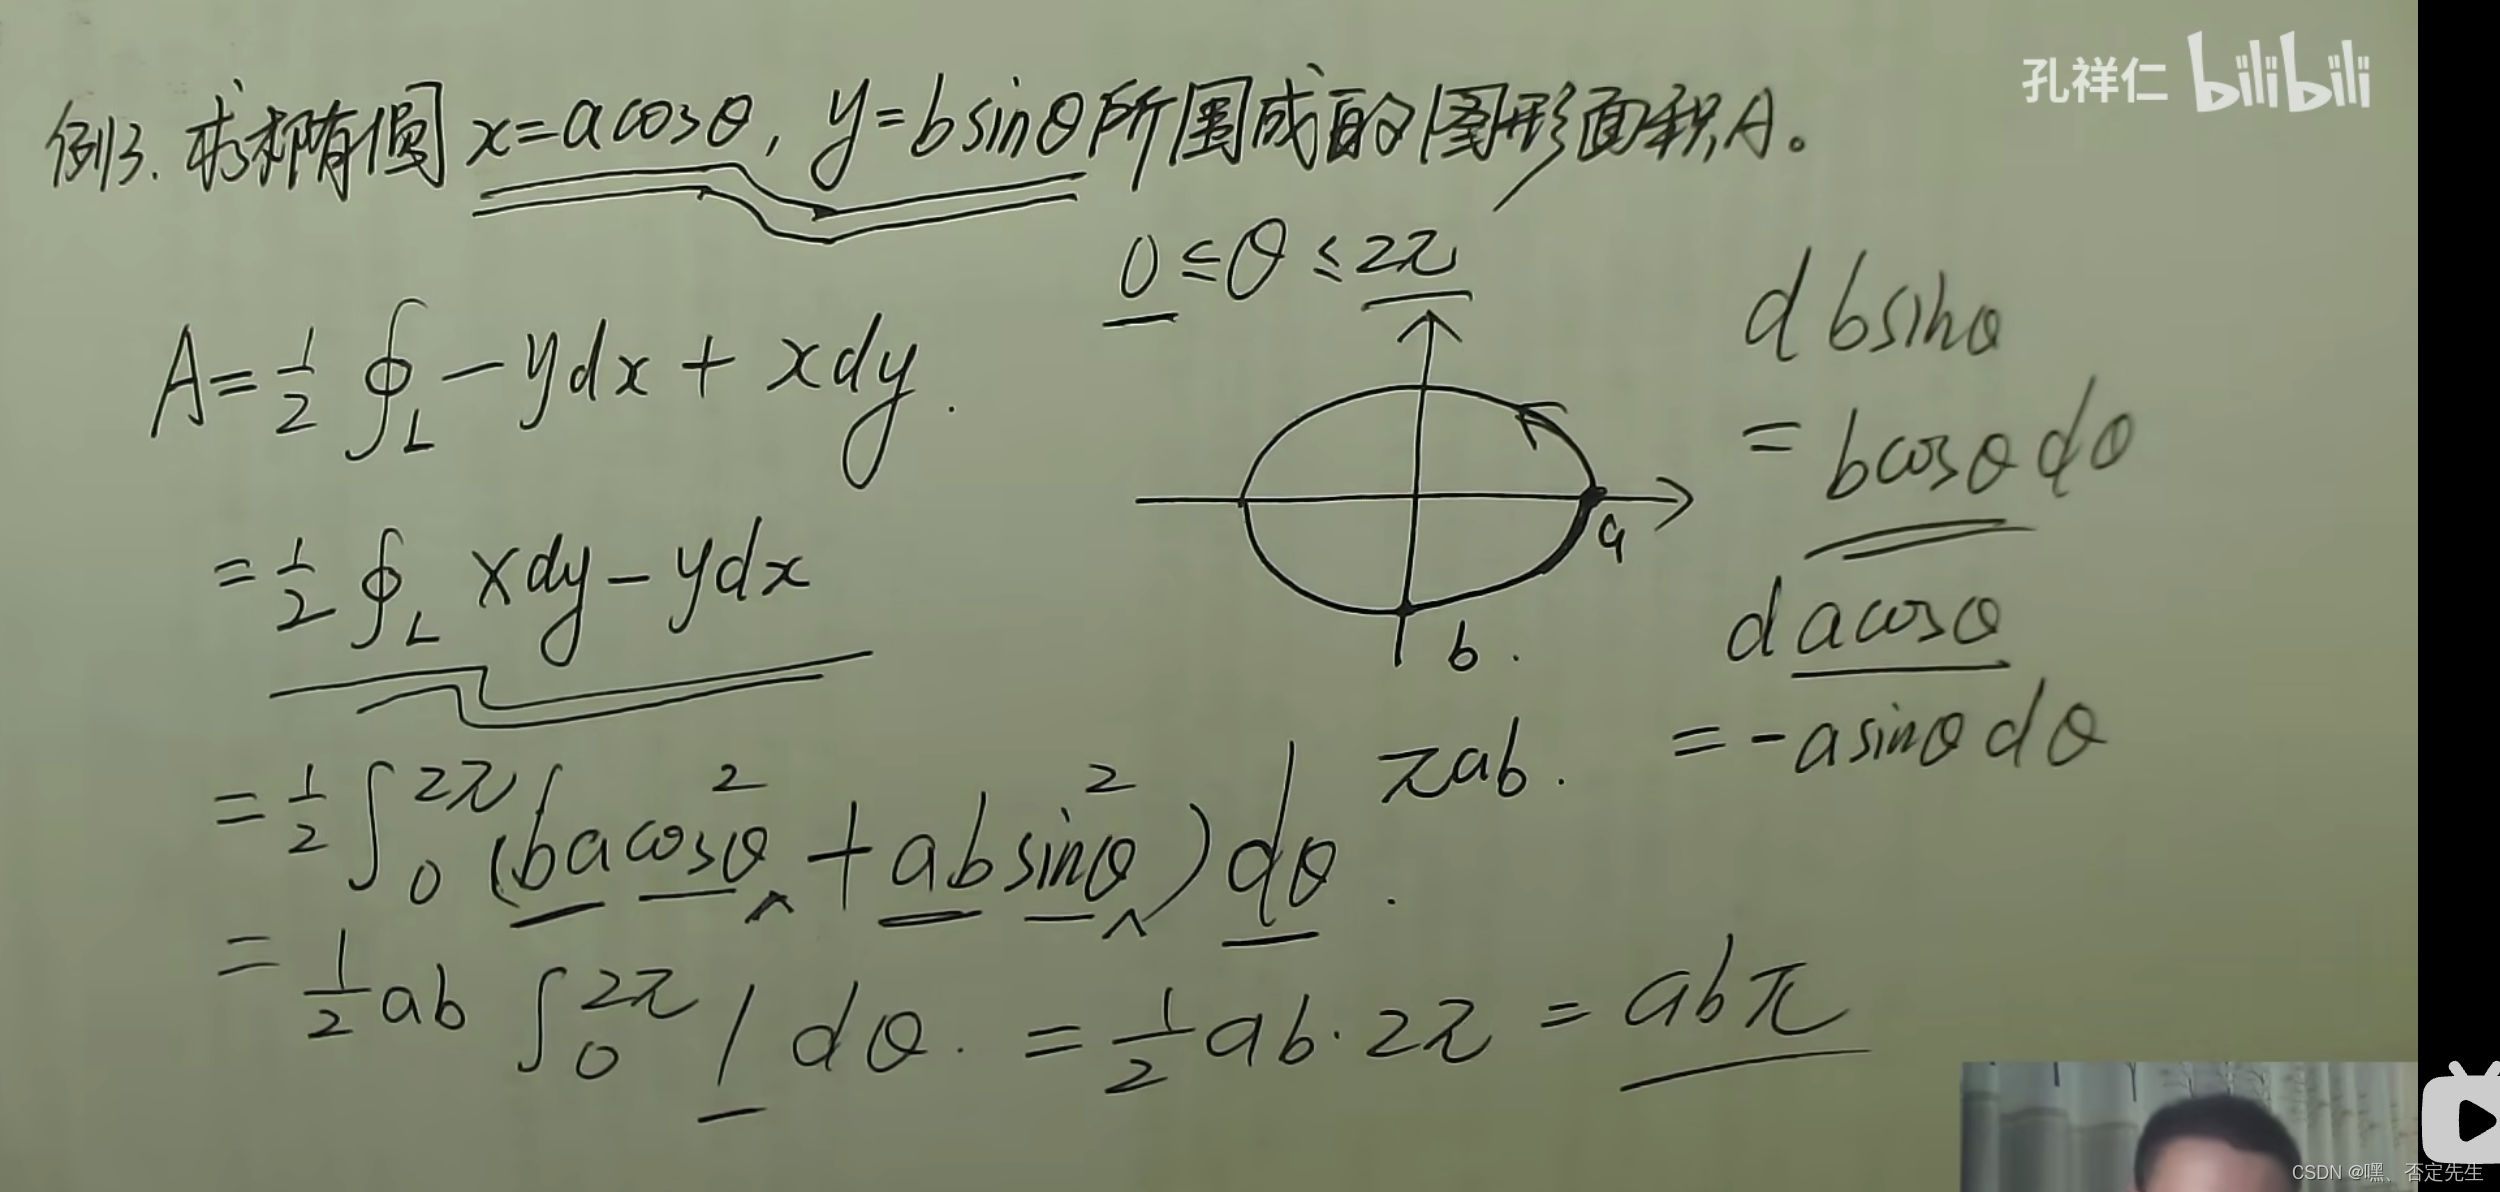 孔祥仁 bilibili
例3. 求椭圆 x=acosθ, y=bsinθ所围成的图形面积A。
0≤θ≤2π
A=1/2 ∮_L -ydx+xdy.
=1/2 ∮_L xdy-ydx
=1/2 ∫_0^2π (bacos²θ+absin²θ)dθ.
=1/2 ab ∫_0^2π 1 dθ. =1/2 ab·2π = abπ
a
b.
πab.
d bsinθ
= bcosθdθ
d acosθ
=-asinθdθ
CSDN @嘿、否定先生